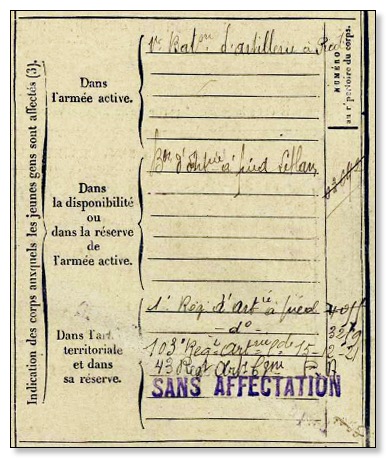 Indication des corps auxquels les jeunes gens sont affectés (3).
NUMÉRO
au répertoire du corps.
Dans
l'armée active.
1er Baton d'artillerie à Pied
Dans
la disponibilité
ou
dans la réserve
de
l'armée active.
Bon d'Artie à pied
Dans l'armée
territoriale
et dans
sa réserve.
1er Rég. d'Artie à pied
-do-
103e Reg. Art. 15-12-21
43 Regt Art
SANS AFFECTATION